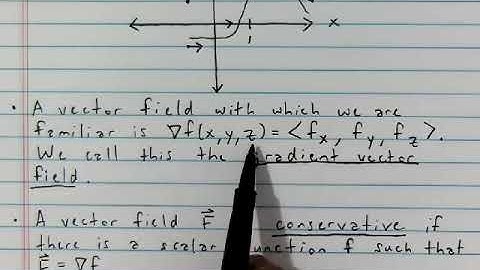 x
1
• A vector field with which we are
familiar is ∇f(x,y,z) = <f_x, f_y, f_z>.
We call this the gradient vector
field.
• A vector field F⃗ conservative if
there is a scalar function f such that
F⃗ = ∇f